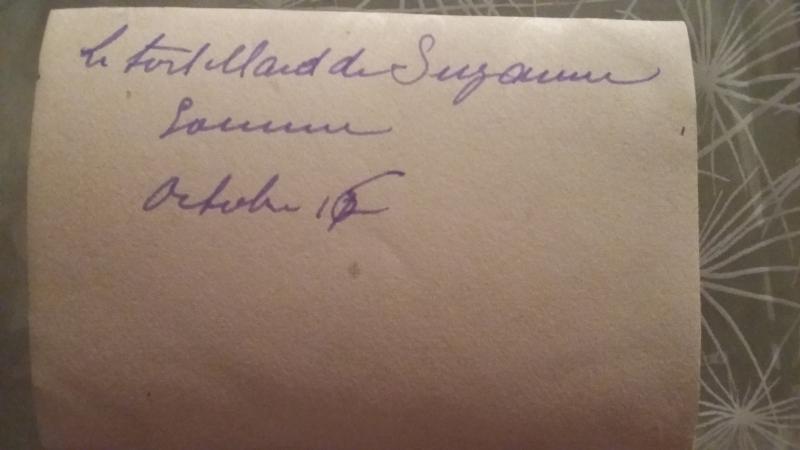 Le fort Mard de Suzanne
Somme
Octobre 16